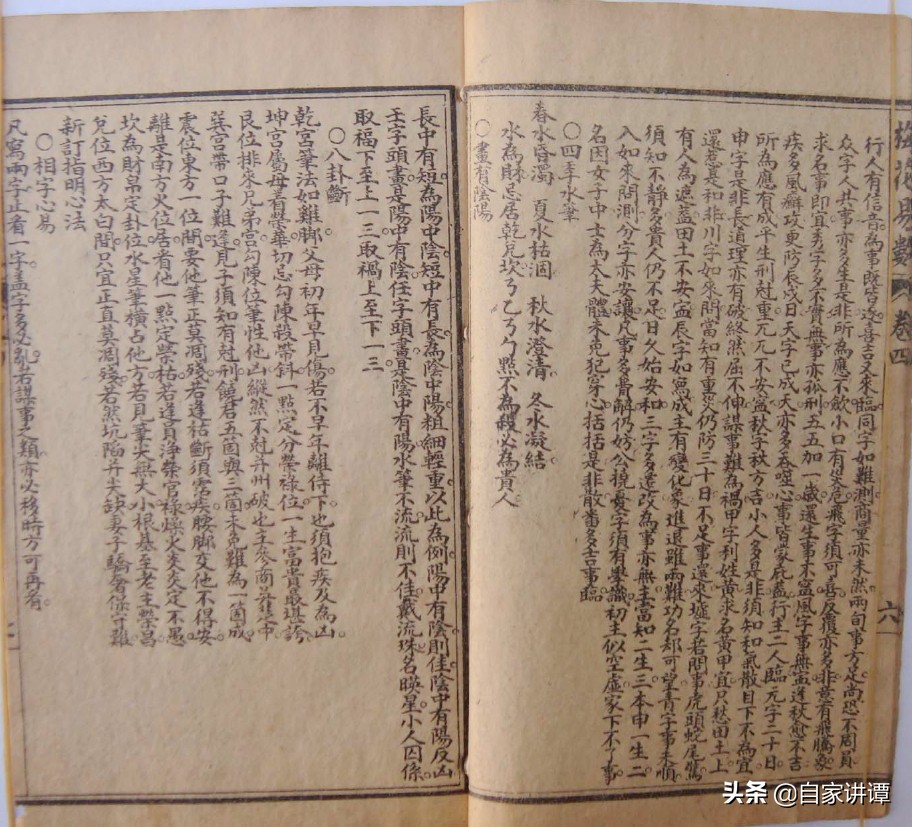 行人有信音為事既皆遂喜吉又來臨同字如難測商量亦未然兩旬事方足尚恐不周員
众字人共事亦多生是非所為應不歛小口有災危飛字須可喜反覆亦多非意有飛騰象
求名事即宜秀字多不實無事亦孤刑五五加一歲還生事不寧風字事無寧逢秋愈不吉
疾多風癬攻更防辰戌日天字已成夭亦多吞噬心事皆蒙庇蓋行主二人臨元字二十日
所為應有成平生刑尅重兀兀不安寧秋字秋方吉小人多是非須知和氣散目下不為宜
申字是非長道理亦有破終然屈不伸謀事難為禍甲字利姓黃求名黃甲宜只愁田土上
還惹是和非川字如來問當知有重災仍防三十日不足事還來墟字若問事虎頭蛇尾驚
有人為遮蓋田土不安寧辰字如為成主有變化象進退雖兩難功名却可望青字事未順
須知不靜多貴人仍不足日久始安和三字多遷改為事亦無主當知二生三本申一生二
入如來問測分字亦安讓凡事多費解仍妨公撓憂字須有學識初主似空虛家下不了事
名因女子中士為大夫體未免犯穿心括括是非散畨多吉事臨
○四季水筆
春水昏濁　夏水枯涸　秋水澄清　冬水凝結
水為財忌居乾兌坎ㄋ乙ㄅ勹點不為殺必為貴人
○畫有陰陽
長中有短為陽中陰短中有長為陰中陽粗細輕重以此為例陽中有陰則佳陰中有陽反凶
壬字頭畫是陽中有陰任字頭畫是陰中有陽水筆不流流則不佳戴流珠名暎星小人囚係
取福下至上一二三取禍上至下一二三
○八卦斷
乾宮筆法如雞脚父母初年早見傷若不早年離侍下也須抱疾及為凶
坤宮屬母看榮華切忌勾陳殺帶斜一點定分榮祿位一生富貴最堪誇
艮位排來兄弟宮勾陳位筆性他凶縱然不尅并州破也字參商
巽宮帶口子難逢見子須知有尅刑饒君五箇與三箇未免難為一箇成
震位東方一位間要他筆正莫凋殘若逢枯斷須常疾腰脚交他不得安
離是南方火位居看他一點定榮枯若逢員淨榮官祿燥火炎炎定不愚
坎為財帛定卦位水星筆橫占他方若見筆尖無大小根基至老主榮昌
兌位西方太白間只宜正直莫凋殘若然坑陷并尖缺妻子驕奢保守難
新訂指明心法
○相字心易
凡寫兩字止看一字盖字多必亂若謀事之類亦必移時方可再看
梅花易數　卷四　六
頭条 @自家讲谭